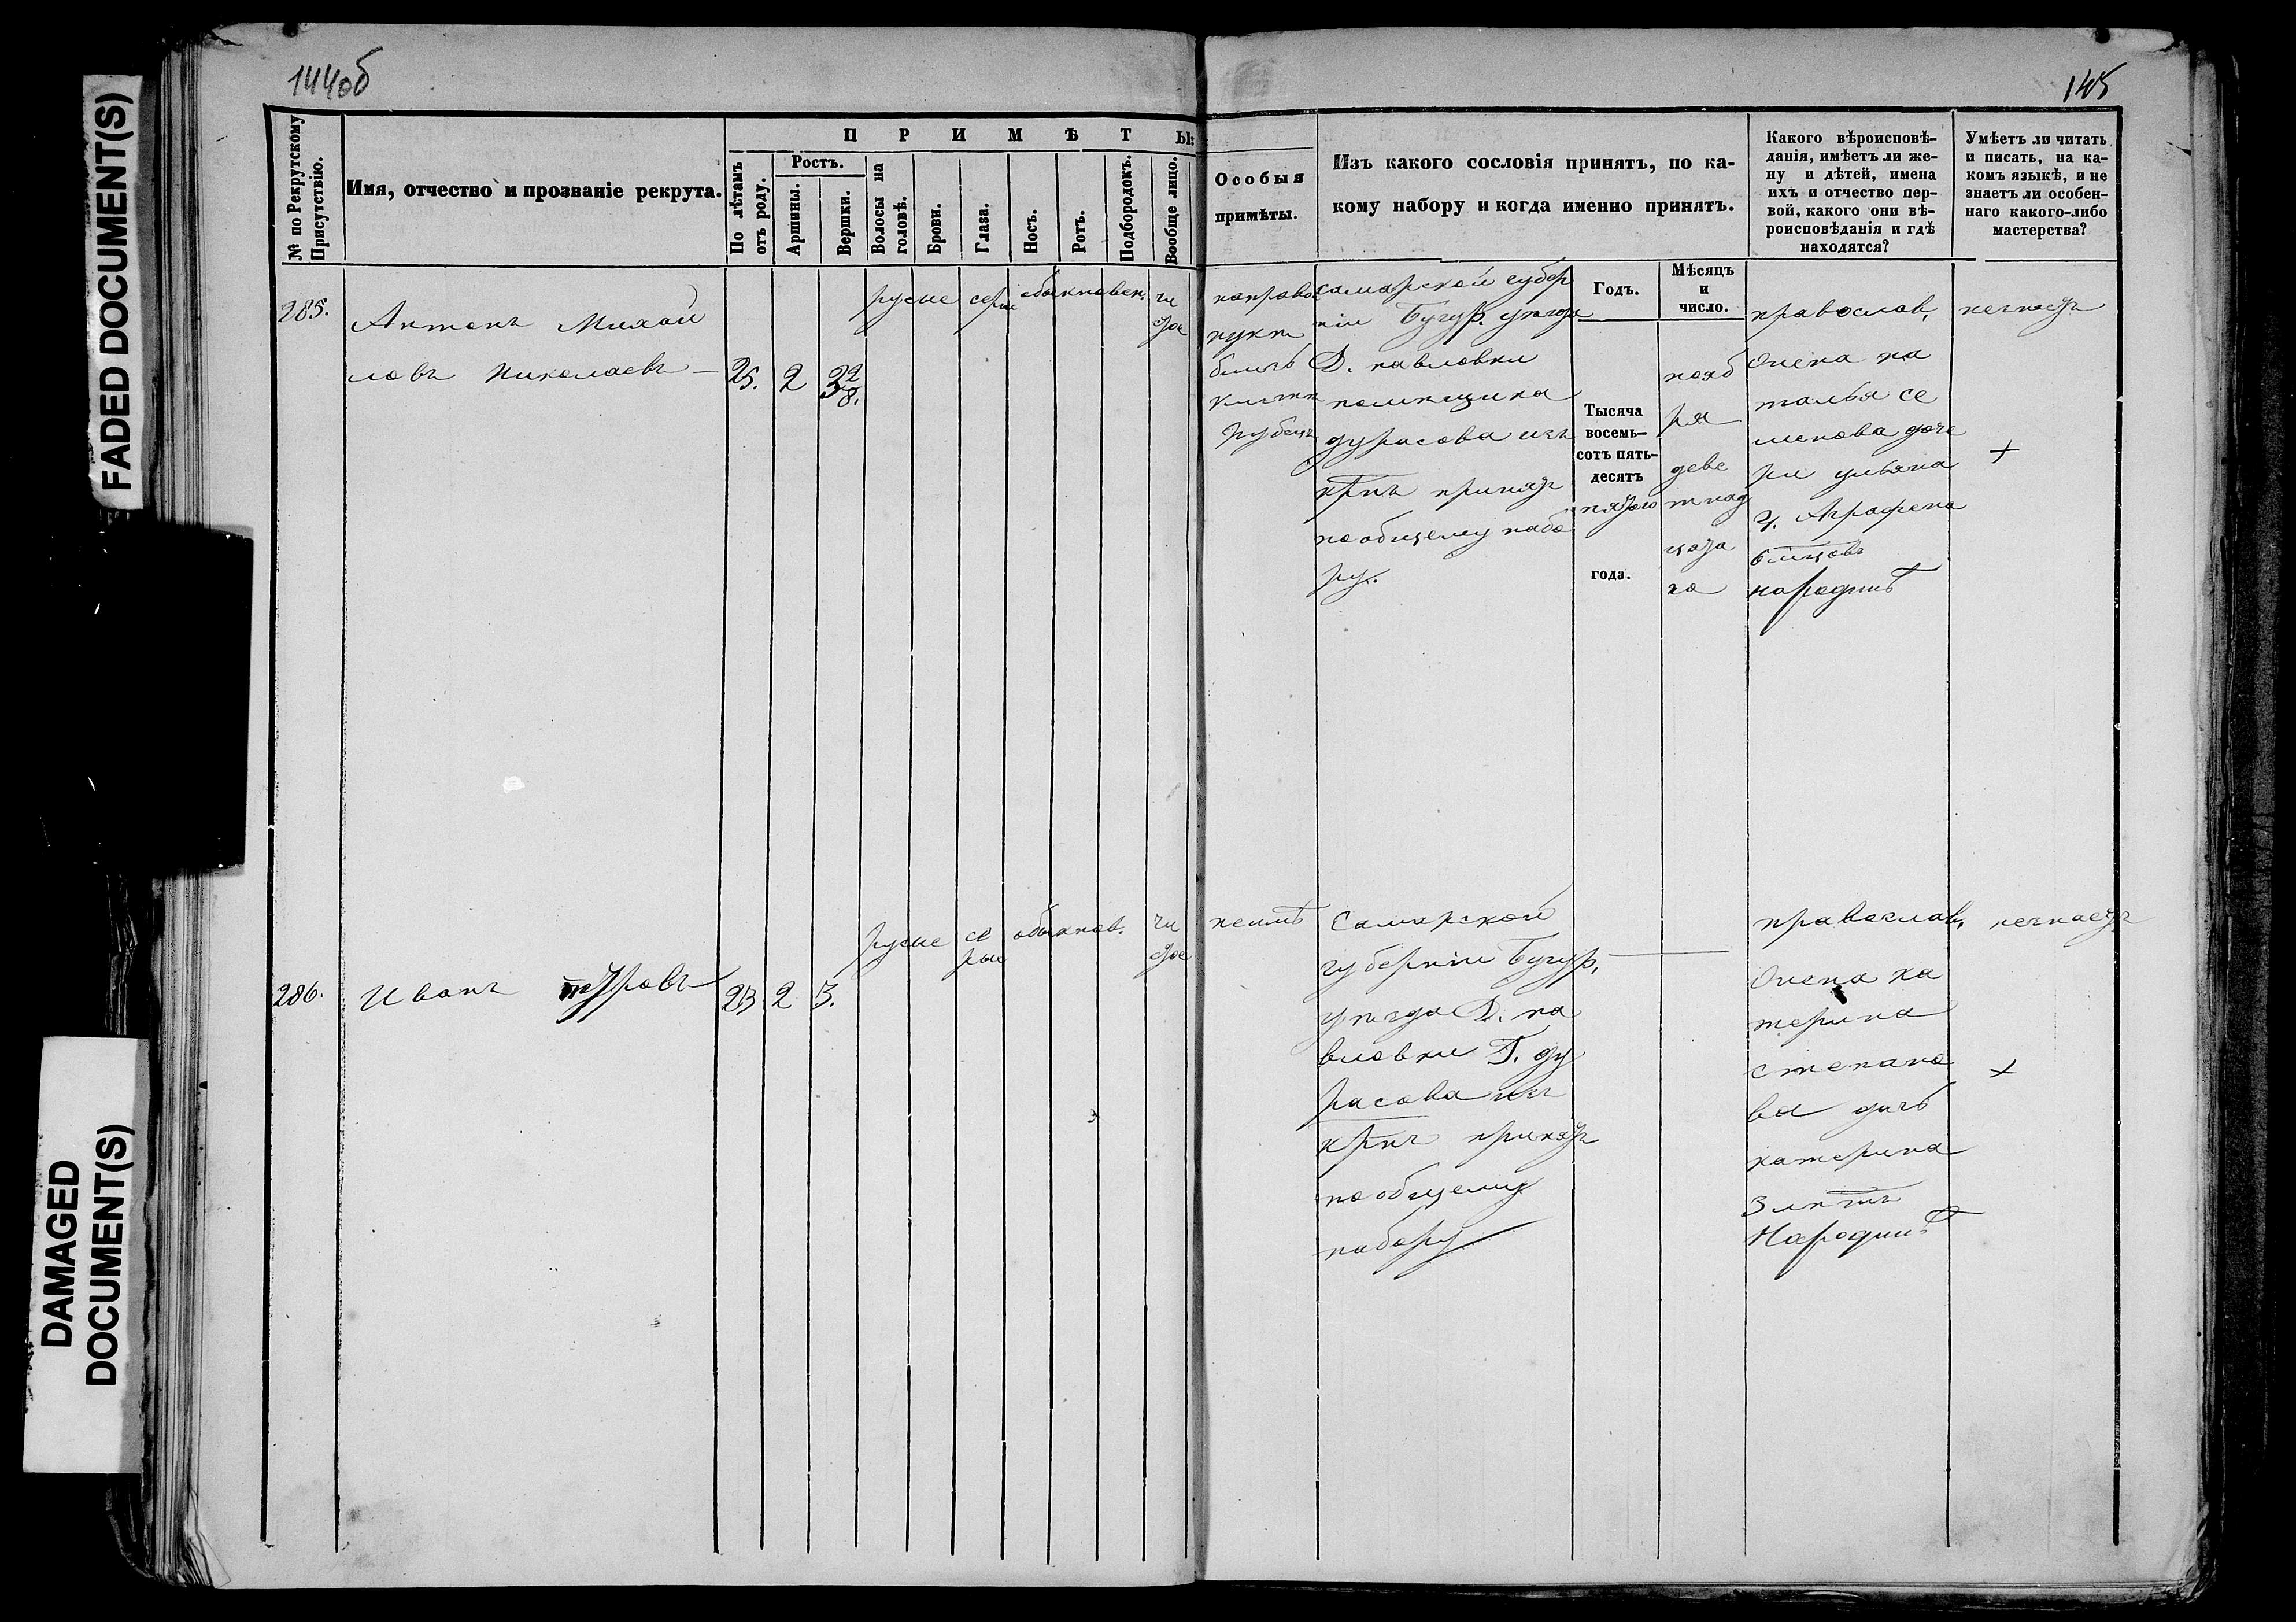 144об
145
FADED DOCUMENT(S)
DAMAGED
DOCUMENT(S)
№ по Рекрутскому
Присутствію.
Имя, отчество и прозваніе рекрута.
ПРИМѢТЫ:
По лѣтамъ
отъ роду.
Ростъ.
Аршины.
Вершки.
Волосы на
головѣ.
Брови.
Глаза.
Носъ.
Ротъ.
Подбородокъ.
Вообще лицо.
Особыя
примѣты.
Изъ какого сословія принятъ, по ка-
кому набору и когда именно принятъ.
Какого вѣроисповѣ-
данія, имѣетъ ли же-
ну и дѣтей, имена
ихъ и отчество пер-
вой, какого они вѣ-
роисповѣданія и гдѣ
находятся?
Умѣетъ ли читать
и писать, на ка-
комъ языкѣ, и не
знаетъ ли особен-
наго какого-либо
мастерства?
Годъ.
Мѣсяцъ
и
число.
285.
Антонъ Михай
ловъ Николаевъ
25.
2
русые
серы
обыкновен.
чи
стое
направо
рубецъ
самарской губер
ніи Бугур. уѣзда
Д. павловки
помѣщика
дурасова изъ
крнъ принятъ
по общему набо
ру.
Тысяча
восемь-
сотъ пять-
десятъ
пятого
года.
нояб
ря
деве
тнад
цата
го
православ,
Онена на
талья се
менова доче
ри ульяна
Аграфена
близцовъ
народинѣ
незнаетъ
+
286.
Иванъ Петровъ
23
2
3.
русые
се
рые
обыкнов.
чи
стое
неимѣ
Самарской
губерніи Бугур.
уѣзда Д. па
вловки Г. ду
расова изъ
крнъ принятъ
по общему
набору
православ,
Онена ка
терина
степано
ва дочь
катерина
3 лѣтъ
Народинѣ
незнаетъ
+